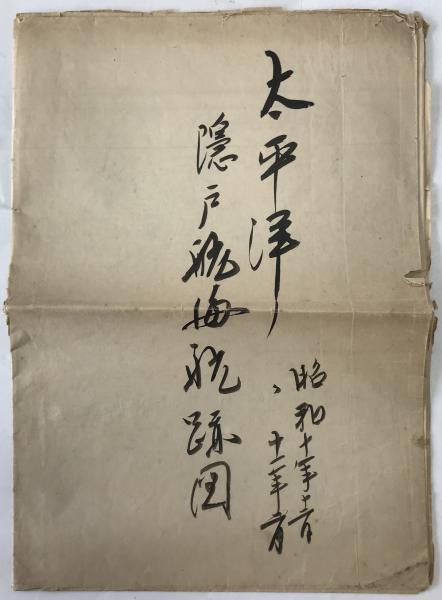 太平洋
隠戸航海航跡図
昭和十年十二月
、十一年二月